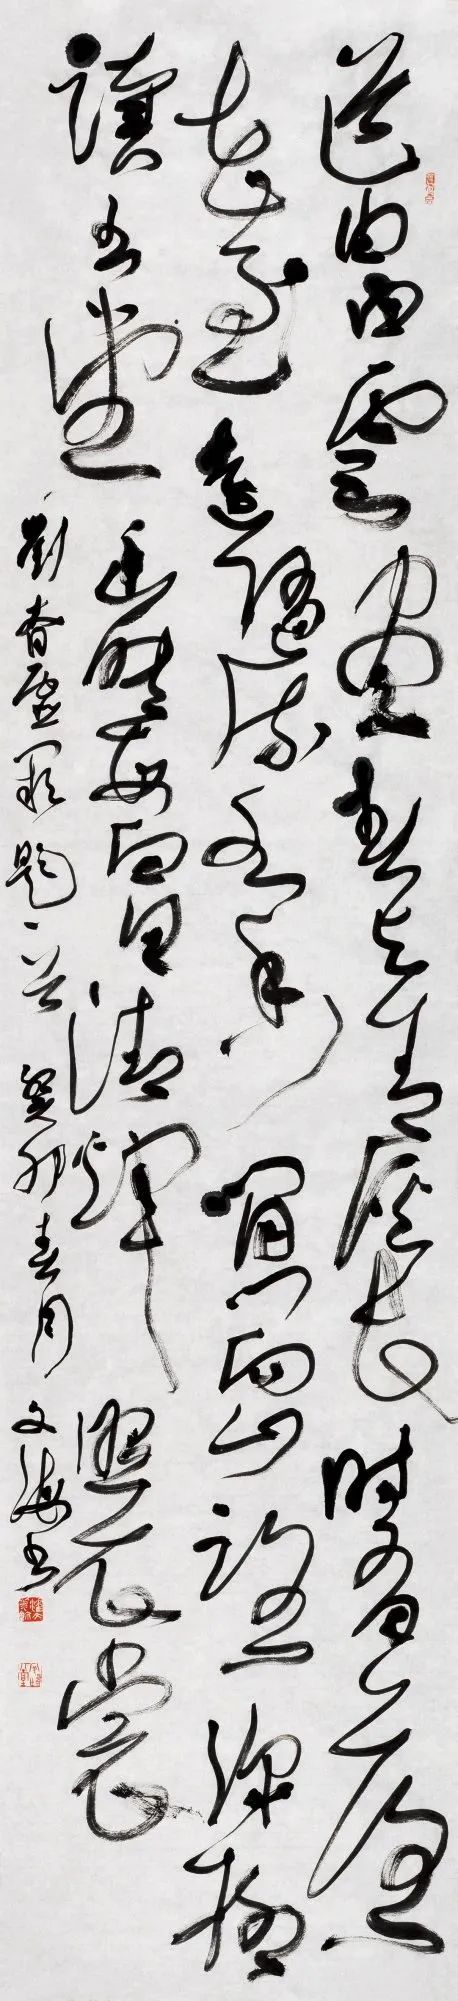 道由白雲盡春与青溪長時有落
花至遠隨流水香閒門向山路深柳
讀書堂幽映每白日清輝照衣裳
劉昚虛闕題一首 癸卯春月 文海書